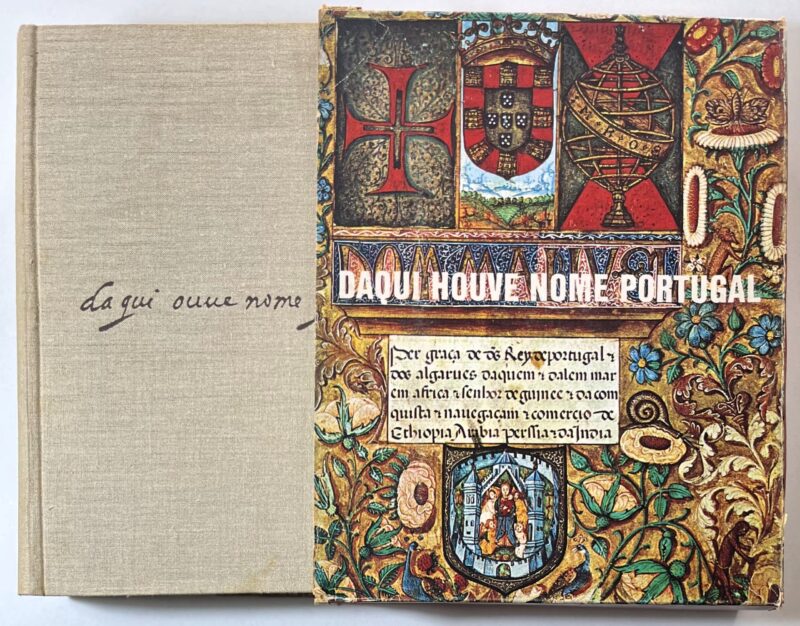 da qui ouue nome
DAQUI HOUVE NOME PORTUGAL
Per graça de ds Rey de portugal &
dos algarues daquem & dalem mar
em africa & senhor de guinee & da com
quista & nauegaçam & comercio de
Ethiopia Arabia perssia & da India